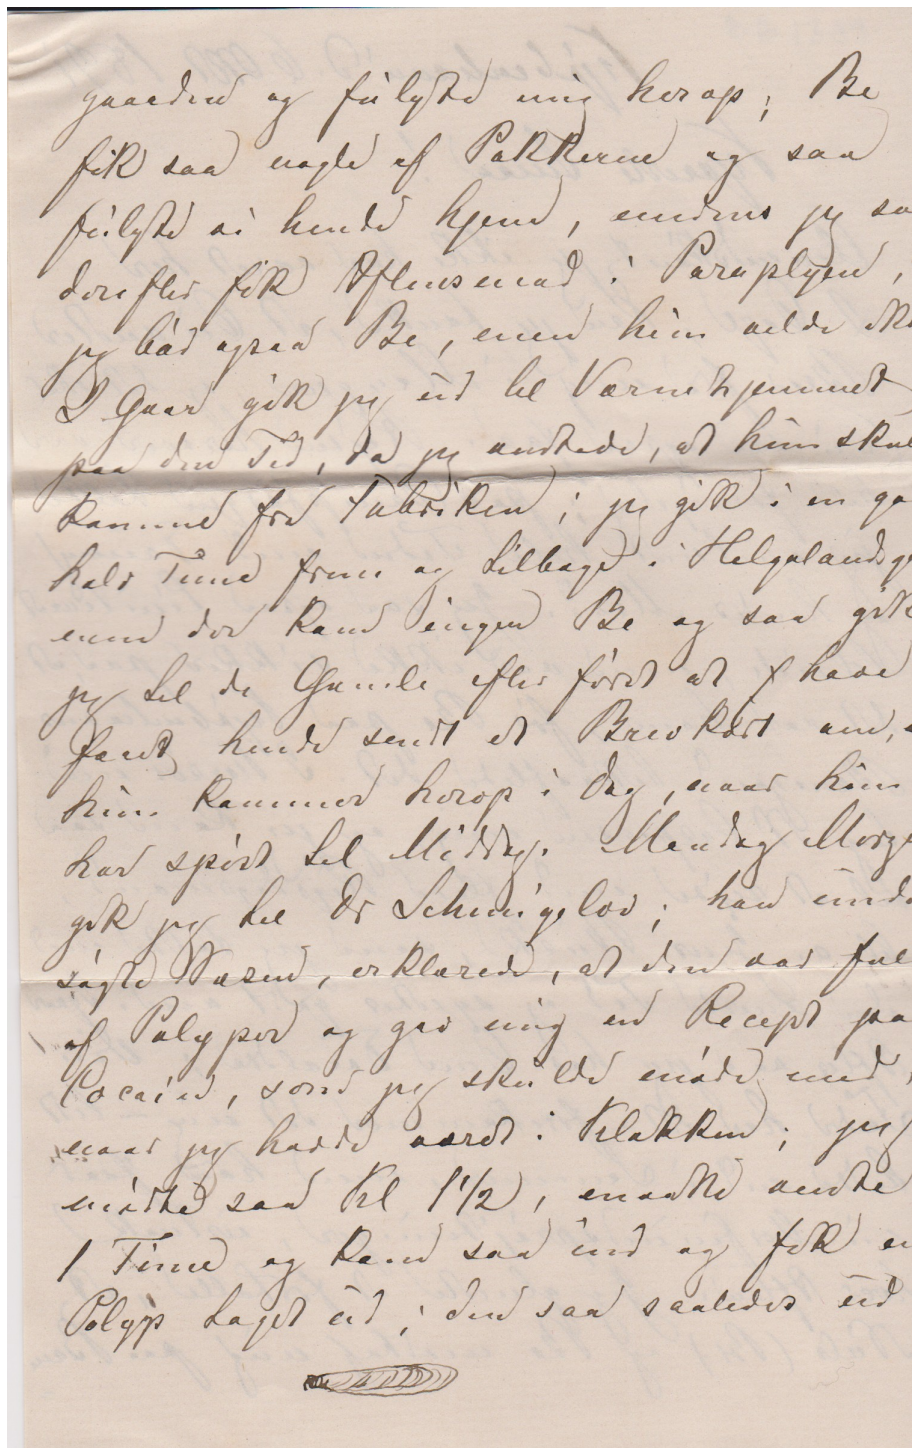 gaarden og fulgte mig herop; Be
fik saa nogle af Pakkerne og saa
fulgte vi hende hjem, mens jeg sa
derefter fik Aftensmad i Paraplyen,
jeg bad ogsaa Be, men hun vilde ikke
I Gaar gik jeg ud til Værnehjemmet
paa den Tid, da jeg ventede, at hun skul
komme fra Fabriken; jeg gik i en go
halv Time frem og tilbage i Helgolandsg
men der kom ingen Be og saa gik
jeg til de Gamle efter først at have
hende sendt et Brevkort om,
hun kommer herop i Dag, naar hun
har spist til Middag. Mandag Morge
gik jeg til Dr Schmigelov; han unde
søgte Næsen, erklærede, at den var ful
af Polyper og gav mig en Recept pa
Cocain, som jeg skulde møde med,
naar jeg havde været i Klokken; jeg
mødte saa Kl 1 1/2, maatte vente
1 Time og kom saa ind og fik en
Polyp taget ud; den saa saaledes ud